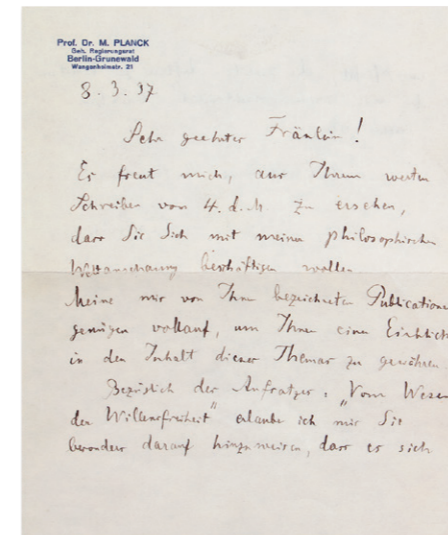 Prof. Dr. M. PLANCK
Geh. Regierungsrat
Berlin-Grunewald
Wangenheimstr. 21
8. 3. 37
Sehr geehrter Fräulein!
Es freut mich, aus Ihrem werten
Schreiben vom 4. d. M. zu ersehen,
dass Sie Sich mit meiner philosophischen
Weltanschauung beschäftigen wollen.
Meine mir von Ihnen bezeichneten Publicationen
genügen vollauf, um Ihnen einen Einblick
in den Inhalt dieser Themas zu gewähren.
Bezüglich des Aufsatzes: „Vom Wesen
der Willensfreiheit" erlaube ich mir Sie
besonders darauf hinzuweisen, dass es sich